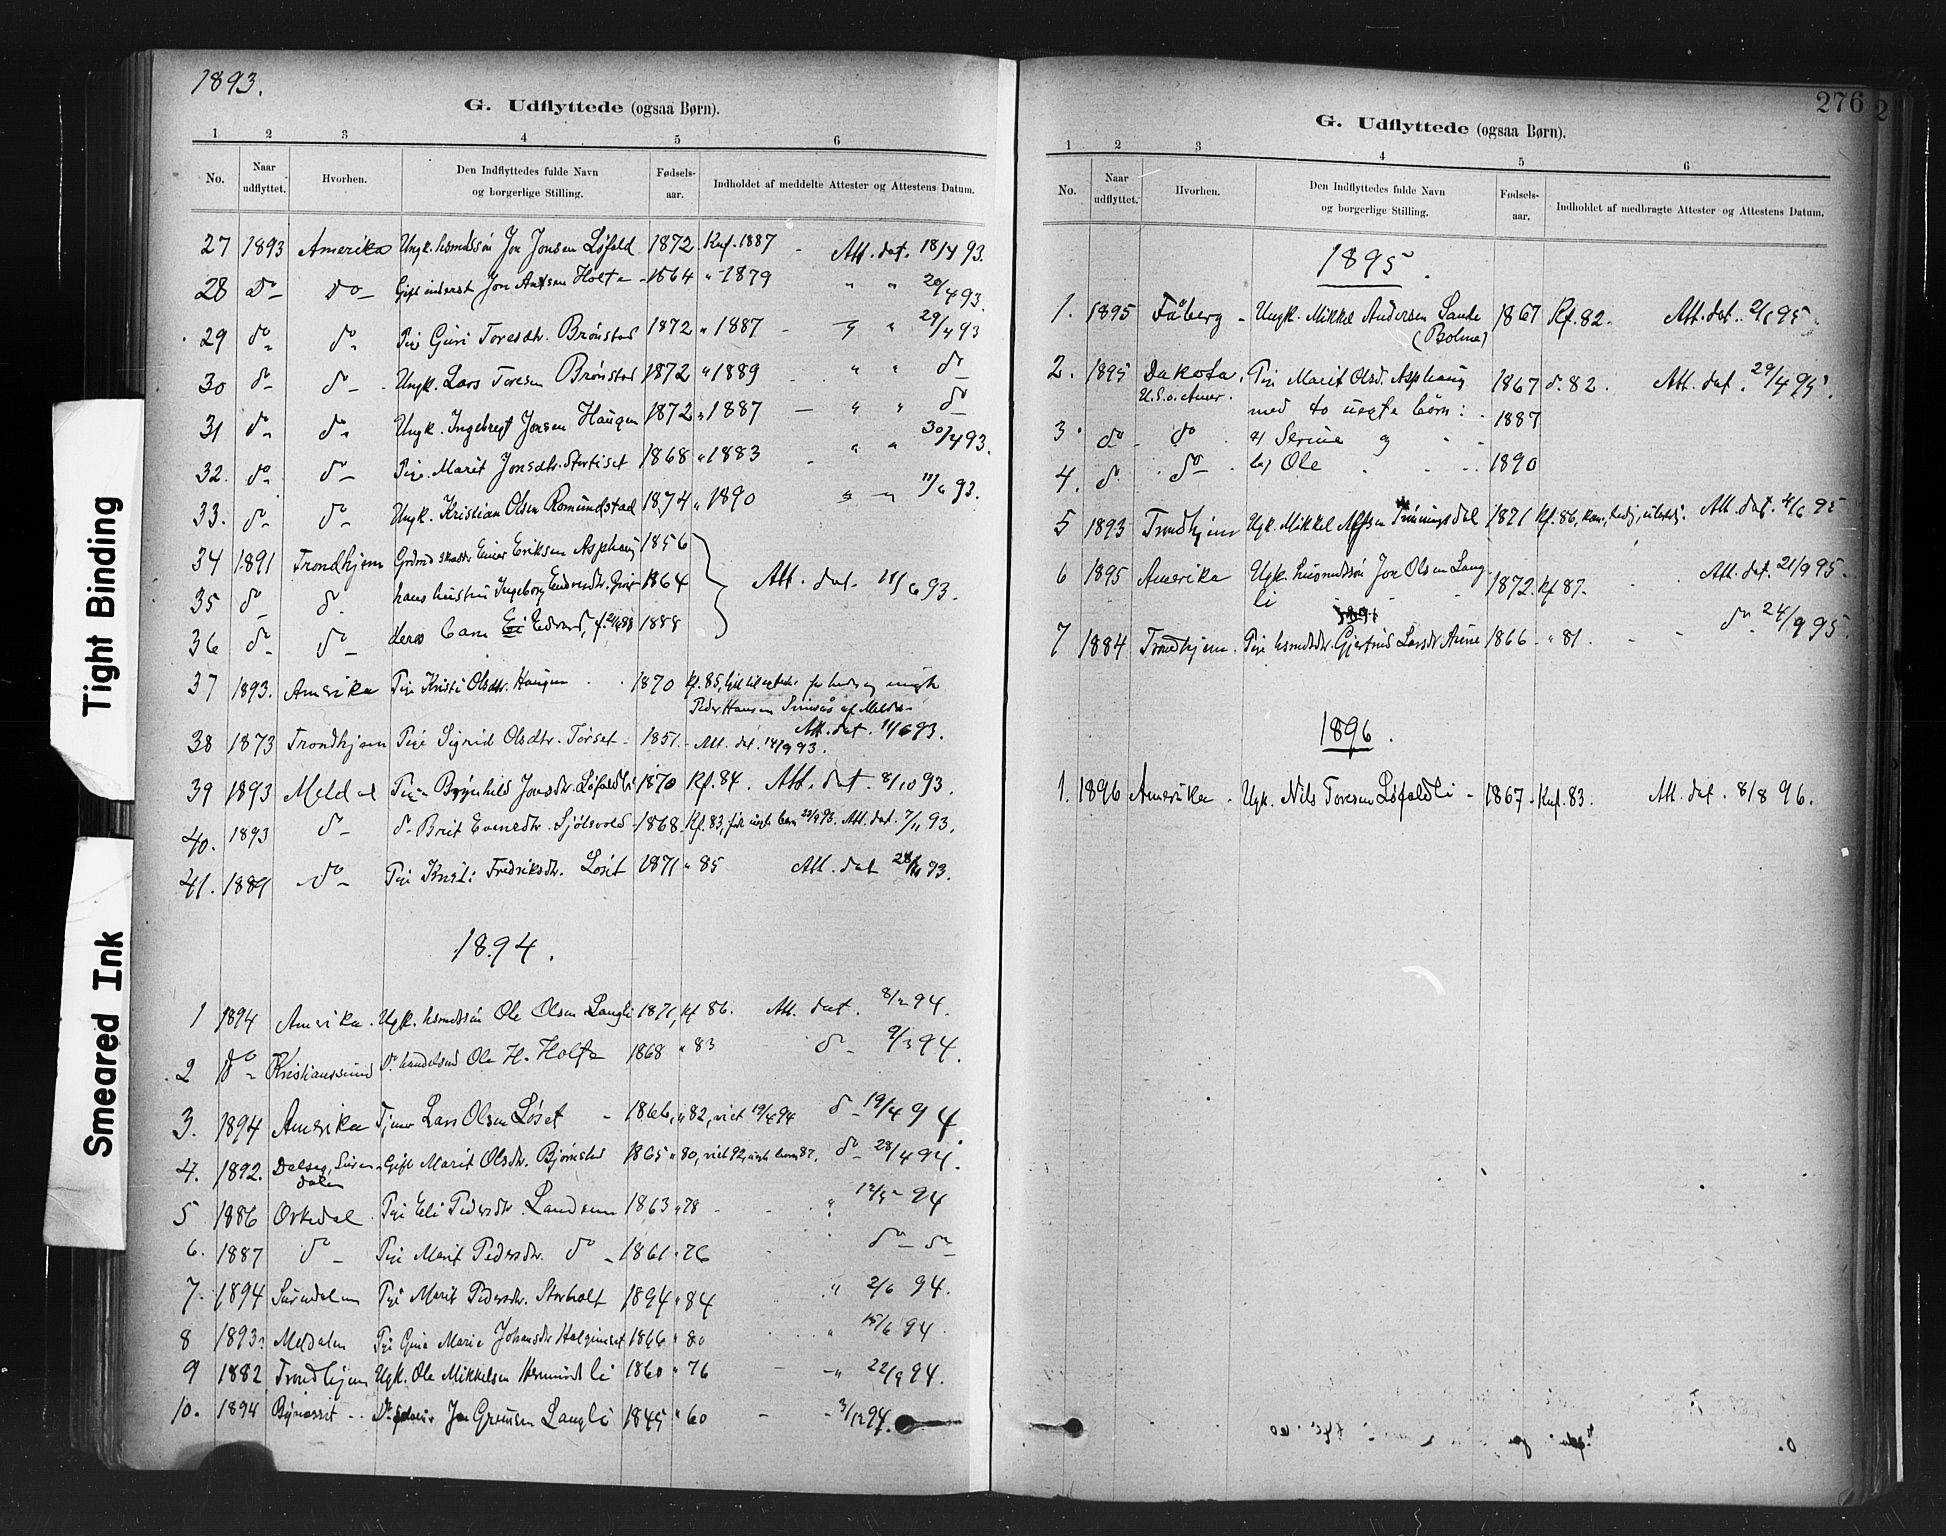 1893.
G. Udflyttede (ogsaa Børn).
1 2 3 4 5 6
No. Naar udflyttet. Hvorhen. Den Indflyttedes fulde Navn og borgerlige Stilling. Fødsels-aar. Indholdet af meddelte Attester og Attestens Datum.
27 1893 Amerika Ungk. husmdssøn Jon Jonsen Løfald 1872 Knf. 1887 - Att. dat. 18/4 93.
28 do do Gift inderst Jon Antsen Holte 1864 " 1879 " " 20/4 93.
29 do do Pige Guri Toresdtr. Brønstad 1872 " 1887 - " " 29/4 93
30 do do Ungk. Lars Toresen Brønstad 1872 " 1889 " " do
31 do do Ungk. Ingebregt Jonsen Haugen 1872 " 1887 - " " do
32. do do Pige Marit Jonsdtr. 1868 " 1883 " " 30/4 93.
33. do do Ungk. Kristian Olsen Romundstad 1874 " 1890 " " 11/6 93.
34 1891 Trondhjem Eriksen Asphaug 1856
35 do do hans hustru Ingeborg 1864 Att. dat. 11/6 93.
36 do do deres barn 1888
37 1893. Amerika Pige Kristi Olsdtr. Haugen 1870 Kf. 85,
Peder Hansen af Meldal
Att. dat. 11/6 93.
38 1873 Trondhjem Pige Sigrid Olsdtr. Tørset 1851. - Att. dat. 14/9 93.
39 1893 Meldal Pige Brynhild Jonsdtr. Løfaldli 1870 Kf. 84. Att. dat. 8/10 93.
40. 1893 do do Brit Evensdtr. Sjølsvold 1868. Kf. 83, Att. dat. 7/11 93.
41. 1889 do Pige Kristi Fredriksdtr. Løset 1871 " 85 Att. dat 93.
1894.
1 1894 Amerika. Ungk. husmdssøn Ole Olsen Langli 1871, Kf 86. Att. dat. 8/2 94.
2 do Kristianssund do Ole H. Holte 1868 " 83 do 9/3 94.
3. 1894 Amerika Tjener Lars Olsen Løset - 1866, " 82, viet 19/4 94 do 19/4 94.
4. 1892. Dalseg, Surendalen Gift Marit Olsdtr. Bjørnstad 1865 " 80, viet 92, uægte barn 87. do 28/4 94.
5 1886 Orkedal Pige Eli Pedersdtr. Landsem 1863 " 78 - " 94
6. 1887 do Pige Marit Pedersdtr. do 1861 " 76 do do
7. 1894 Surndalen Pige Marit Pedersdtr. Storholt 1894 " 84 " 2/6 94.
8 1893. Meldalen Pige Gina Marie Johansdtr 1866 " 80 " 15/6 94.
9 1882 Trondhjem Ugk. Ole Mikkelsen 1860 " 76 " 22/9 94.
10. 1894 Bynesset Langli 1845 " 60 - 3/12 94.
276
G. Udflyttede (ogsaa Børn).
1 2 3 4 5 6
No. Naar udflyttet. Hvorhen. Den Indflyttedes fulde Navn og borgerlige Stilling. Fødsels-aar. Indholdet af medbragte Attester og Attestens Datum.
1895.
1. 1895 Fåberg Ungk. Mikkel Andersen Sande (Bolme) 1867 Kf. 82. Att. dat. 95.
2. 1895 Dakota, U.S. o. Amer. Pige Marit Olsd. Asphaug 1867 do. 82. Att. dat. 29/4 95.
med to uægte børn: 1887
3. do do a) Serine og
4. do do b) Ole 1890
5 1893 Trondhjem Ugk. Mikkel 1871 Kf. 86, Att. dat. 4/6 95
6 1895 Amerika Ugk. husmdssøn Jon Olsen Langli 1872. Kf 87. Att. dat. 21/9 95.
7 1884 Trondhjem. Pige husmdsdtr. Gjertrud Larsdtr Aune 1866 - " 81. do 24/9 95.
1896.
1. 1896 Amerika Ugk. Nils Toresen Løfaldli - 1867 - Knf. 83. Att. dat. 8/8 96.
Tight Binding
Smeared Ink